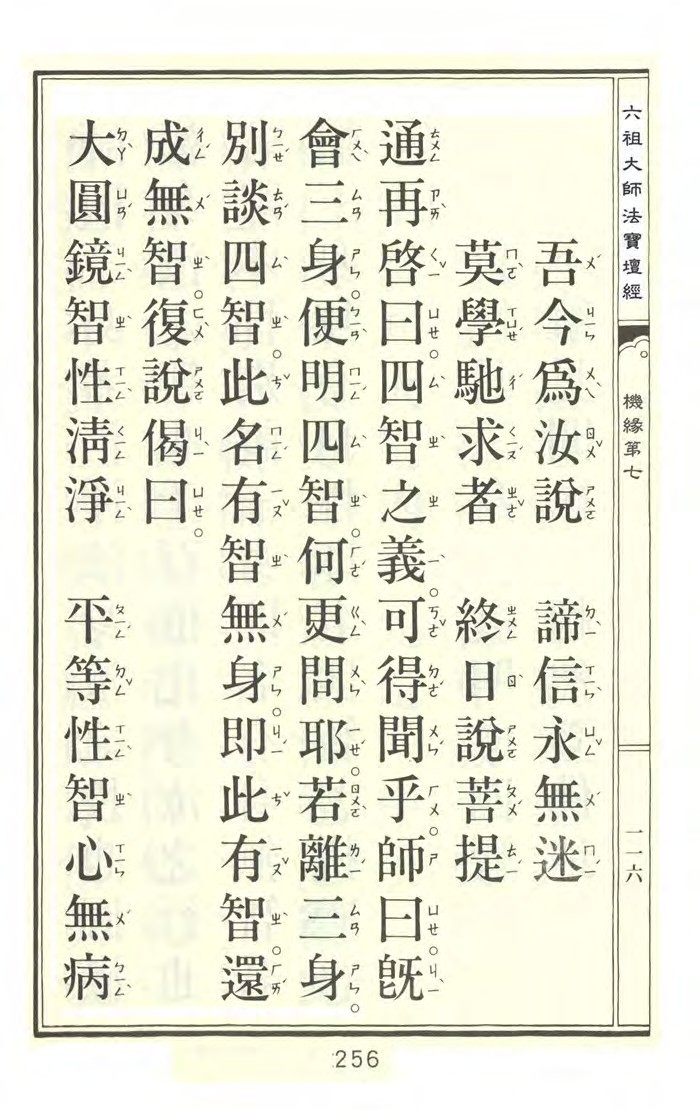 六祖大師法寶壇經 機緣第七 一一六
吾今爲汝說 諦信永無迷
莫學馳求者 終日說菩提
通再啓曰。四智之義。可得聞乎。師曰。旣
會三身。便明四智。何更問耶。若離三身。
別談四智。此名有智無身。即此有智。還
成無智。復說偈曰。
大圓鏡智性淸淨 平等性智心無病
256